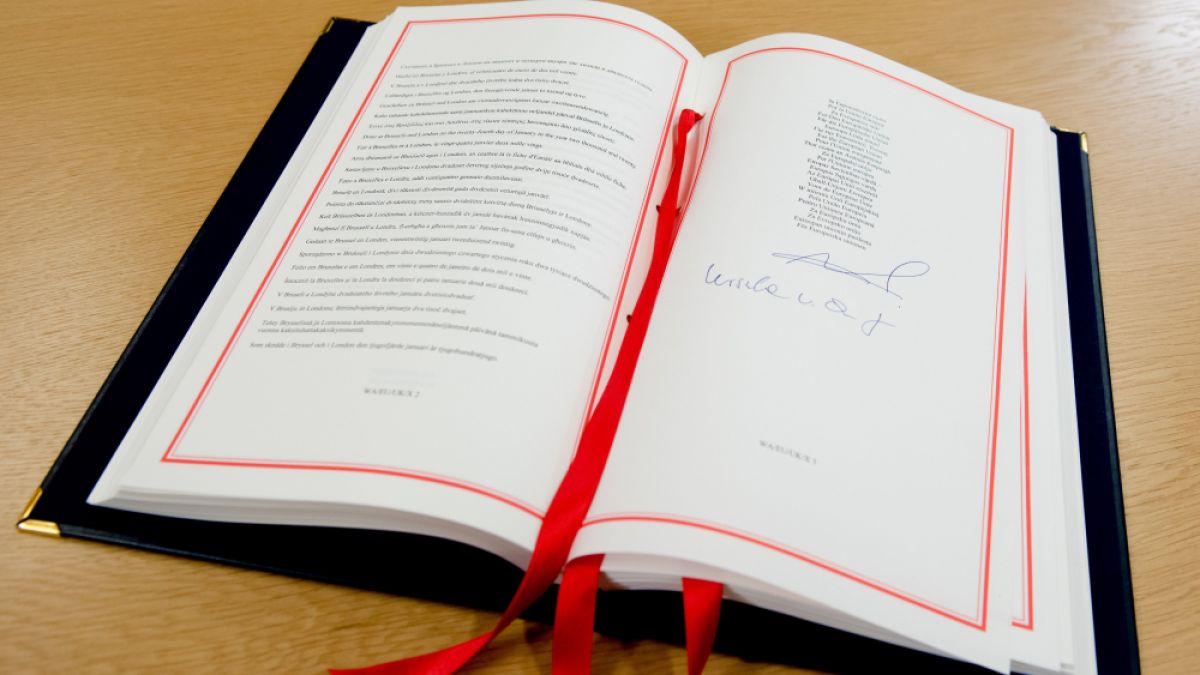 Съставено в Брюксел и Лондон на двадесет и четвърти януари две хиляди и двадесета година.
Hecho en Bruselas y Londres, el veinticuatro de enero de dos mil veinte.
V Bruselu a v Londýně dne dvacátého čtvrtého ledna dva tisíce dvacet.
Udfærdiget i Bruxelles og London, den fireogtyvende januar to tusind og tyve.
Geschehen zu Brüssel und London am vierundzwanzigsten Januar zweitausendzwanzig.
Kahe tuhande kahekümnenda aasta jaanuarikuu kahekümne neljandal päeval Brüsselis ja Londonis.
Έγινε στις Βρυξέλλες και στο Λονδίνο, στις είκοσι τέσσερις Ιανουαρίου δύο χιλιάδες είκοσι.
Done at Brussels and London on the twenty-fourth day of January in the year two thousand and twenty.
Fait à Bruxelles et à Londres, le vingt-quatre janvier deux mille vingt.
Arna dhéanamh sa Bhruiséil agus i Londain, an ceathrú lá is fiche d'Eanáir an bhliain dhá mhíle fiche.
Sastavljeno u Bruxellesu i Londonu dvadeset četvrtog siječnja godine dvije tisuće dvadesete.
Fatto a Bruxelles e Londra, addì ventiquattro gennaio duemilaventi.
Briselē un Londonā, divi tūkstoši divdesmitā gada divdesmit ceturtajā janvārī.
Priimta du tūkstančiai dvidešimtų metų sausio dvidešimt ketvirtą dieną Briuselyje ir Londone.
Kelt Brüsszelben és Londonban, a kétezer-huszadik év január havának huszonnegyedik napján.
Magħmul fi Brussell u Londra, fl-erbgħa u għoxrin jum ta' Jannar fis-sena elfejn u għoxrin.
Gedaan te Brussel en Londen, vierentwintig januari tweeduizend twintig.
Sporządzono w Brukseli i Londynie dnia dwudziestego czwartego stycznia roku dwa tysiące dwudziestego.
Feito em Bruxelas e em Londres, em vinte e quatro de janeiro de dois mil e vinte.
Întocmit la Bruxelles și la Londra la douăzeci și patru ianuarie două mii douăzeci.
V Bruseli a Londýne dvadsiateho štvrtého januára dvetisícdvadsať.
V Bruslju in Londonu, štiriindvajsetega januarja dva tisoč dvajset.
Tehty Brysselissä ja Lontoossa kahdentenakymmenentenäneljäntenä päivänä tammikuuta
vuonna kaksituhattakaksikymmentä.
Som skedde i Bryssel och i London den tjugofjärde januari år tjugohundratjugo.
WA/EU/UK/X 2
За Европейския съюз
Por la Unión Europea
Za Evropskou unii
For Den Europæiske Union
Für die Europäische Union
Euroopa Liidu nimel
Για την Ευρωπαϊκή Ένωση
For the European Union
Pour l'Union européenne
Thar ceann an Aontais Eorpaigh
Za Europsku uniju
Per l'Unione europea
Eiropas Savienības vārdā
Europos Sąjungos vardu
Az Európai Unió részéről
Għall-Unjoni Ewropea
Voor de Europese Unie
W imieniu Unii Europejskiej
Pela União Europeia
Pentru Uniunea Europeană
Za Európsku úniu
Za Evropsko unijo
Euroopan unionin puolesta
För Europeiska unionen
WA/EU/UK/X 3